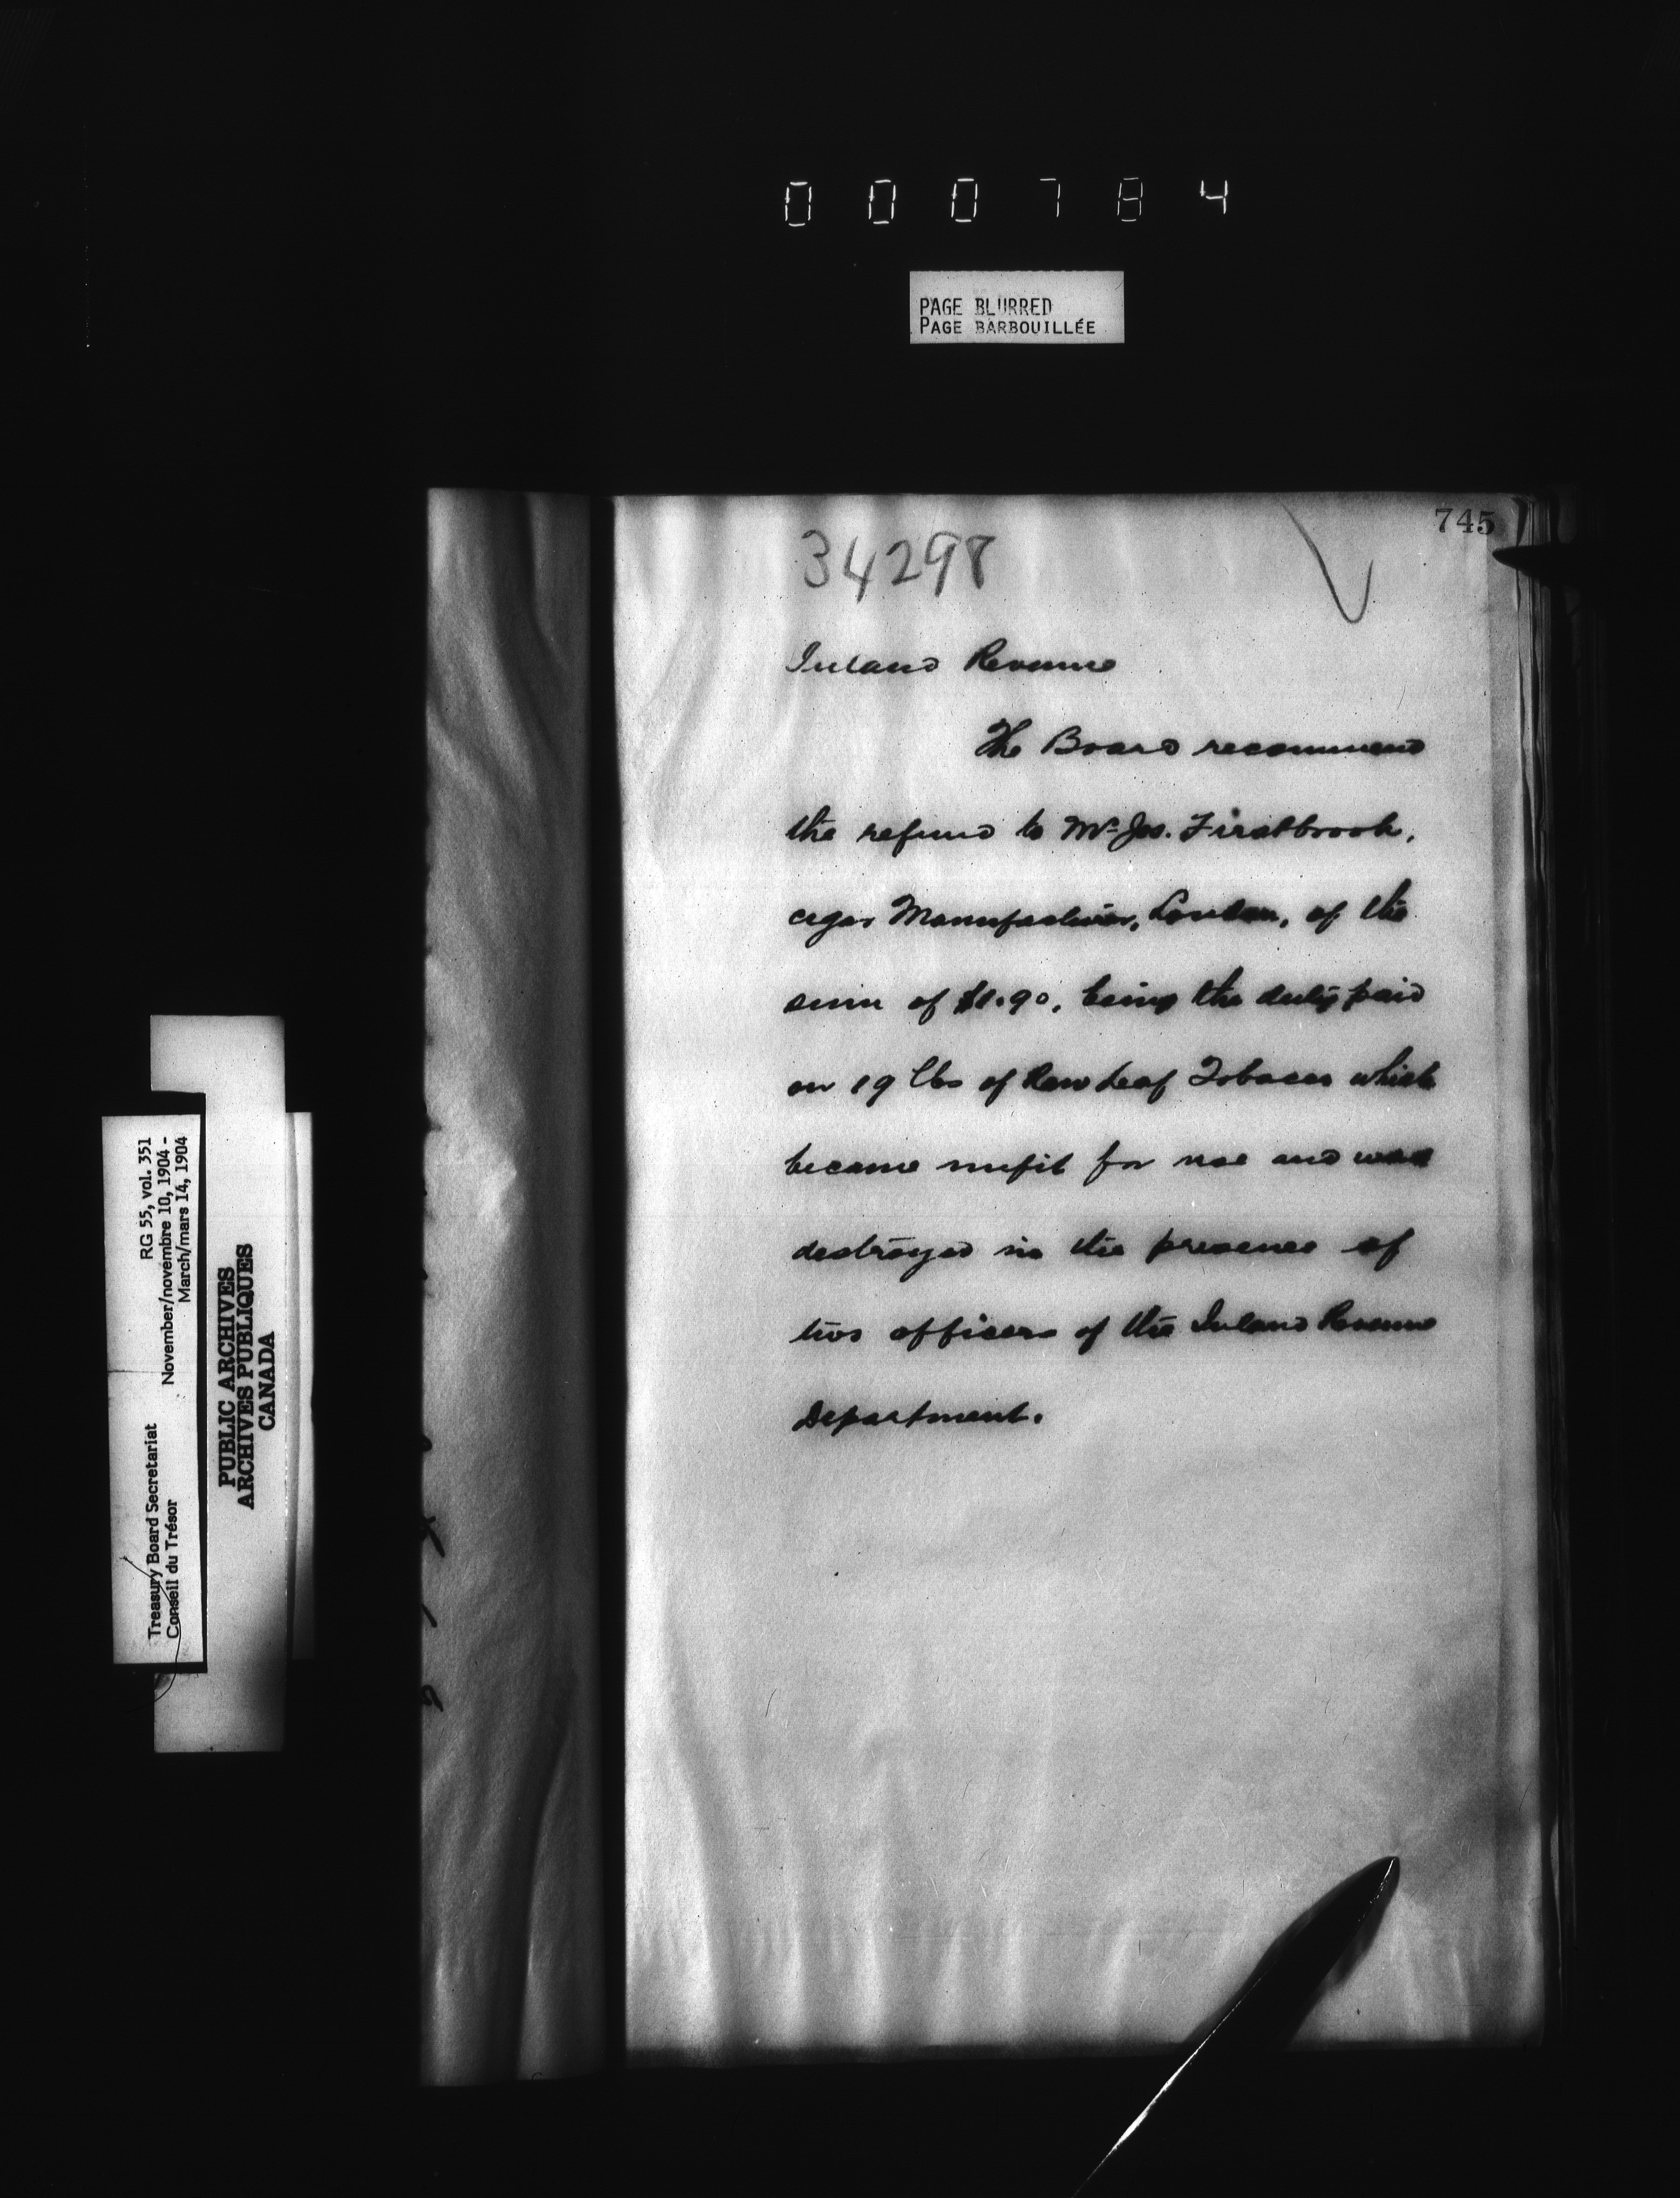 000784
PAGE BLURRED
PAGE BARBOUILLÉE
745
34298
Inland Revenue
The Board recommend
the refund to Mr Jos. Firstbrook,
cigar Manufacturer, London, of the
sum of $1.90, being the duty paid
on 19 lbs of Raw Leaf Tobacco which
became unfit for use and was
destroyed in the presence of
two officers of the Inland Revenue
Department.
Treasury Board Secretariat RG 55, vol. 351
Conseil du Trésor November/novembre 10, 1904 -
March/mars 14, 1904
PUBLIC ARCHIVES
ARCHIVES PUBLIQUES
CANADA